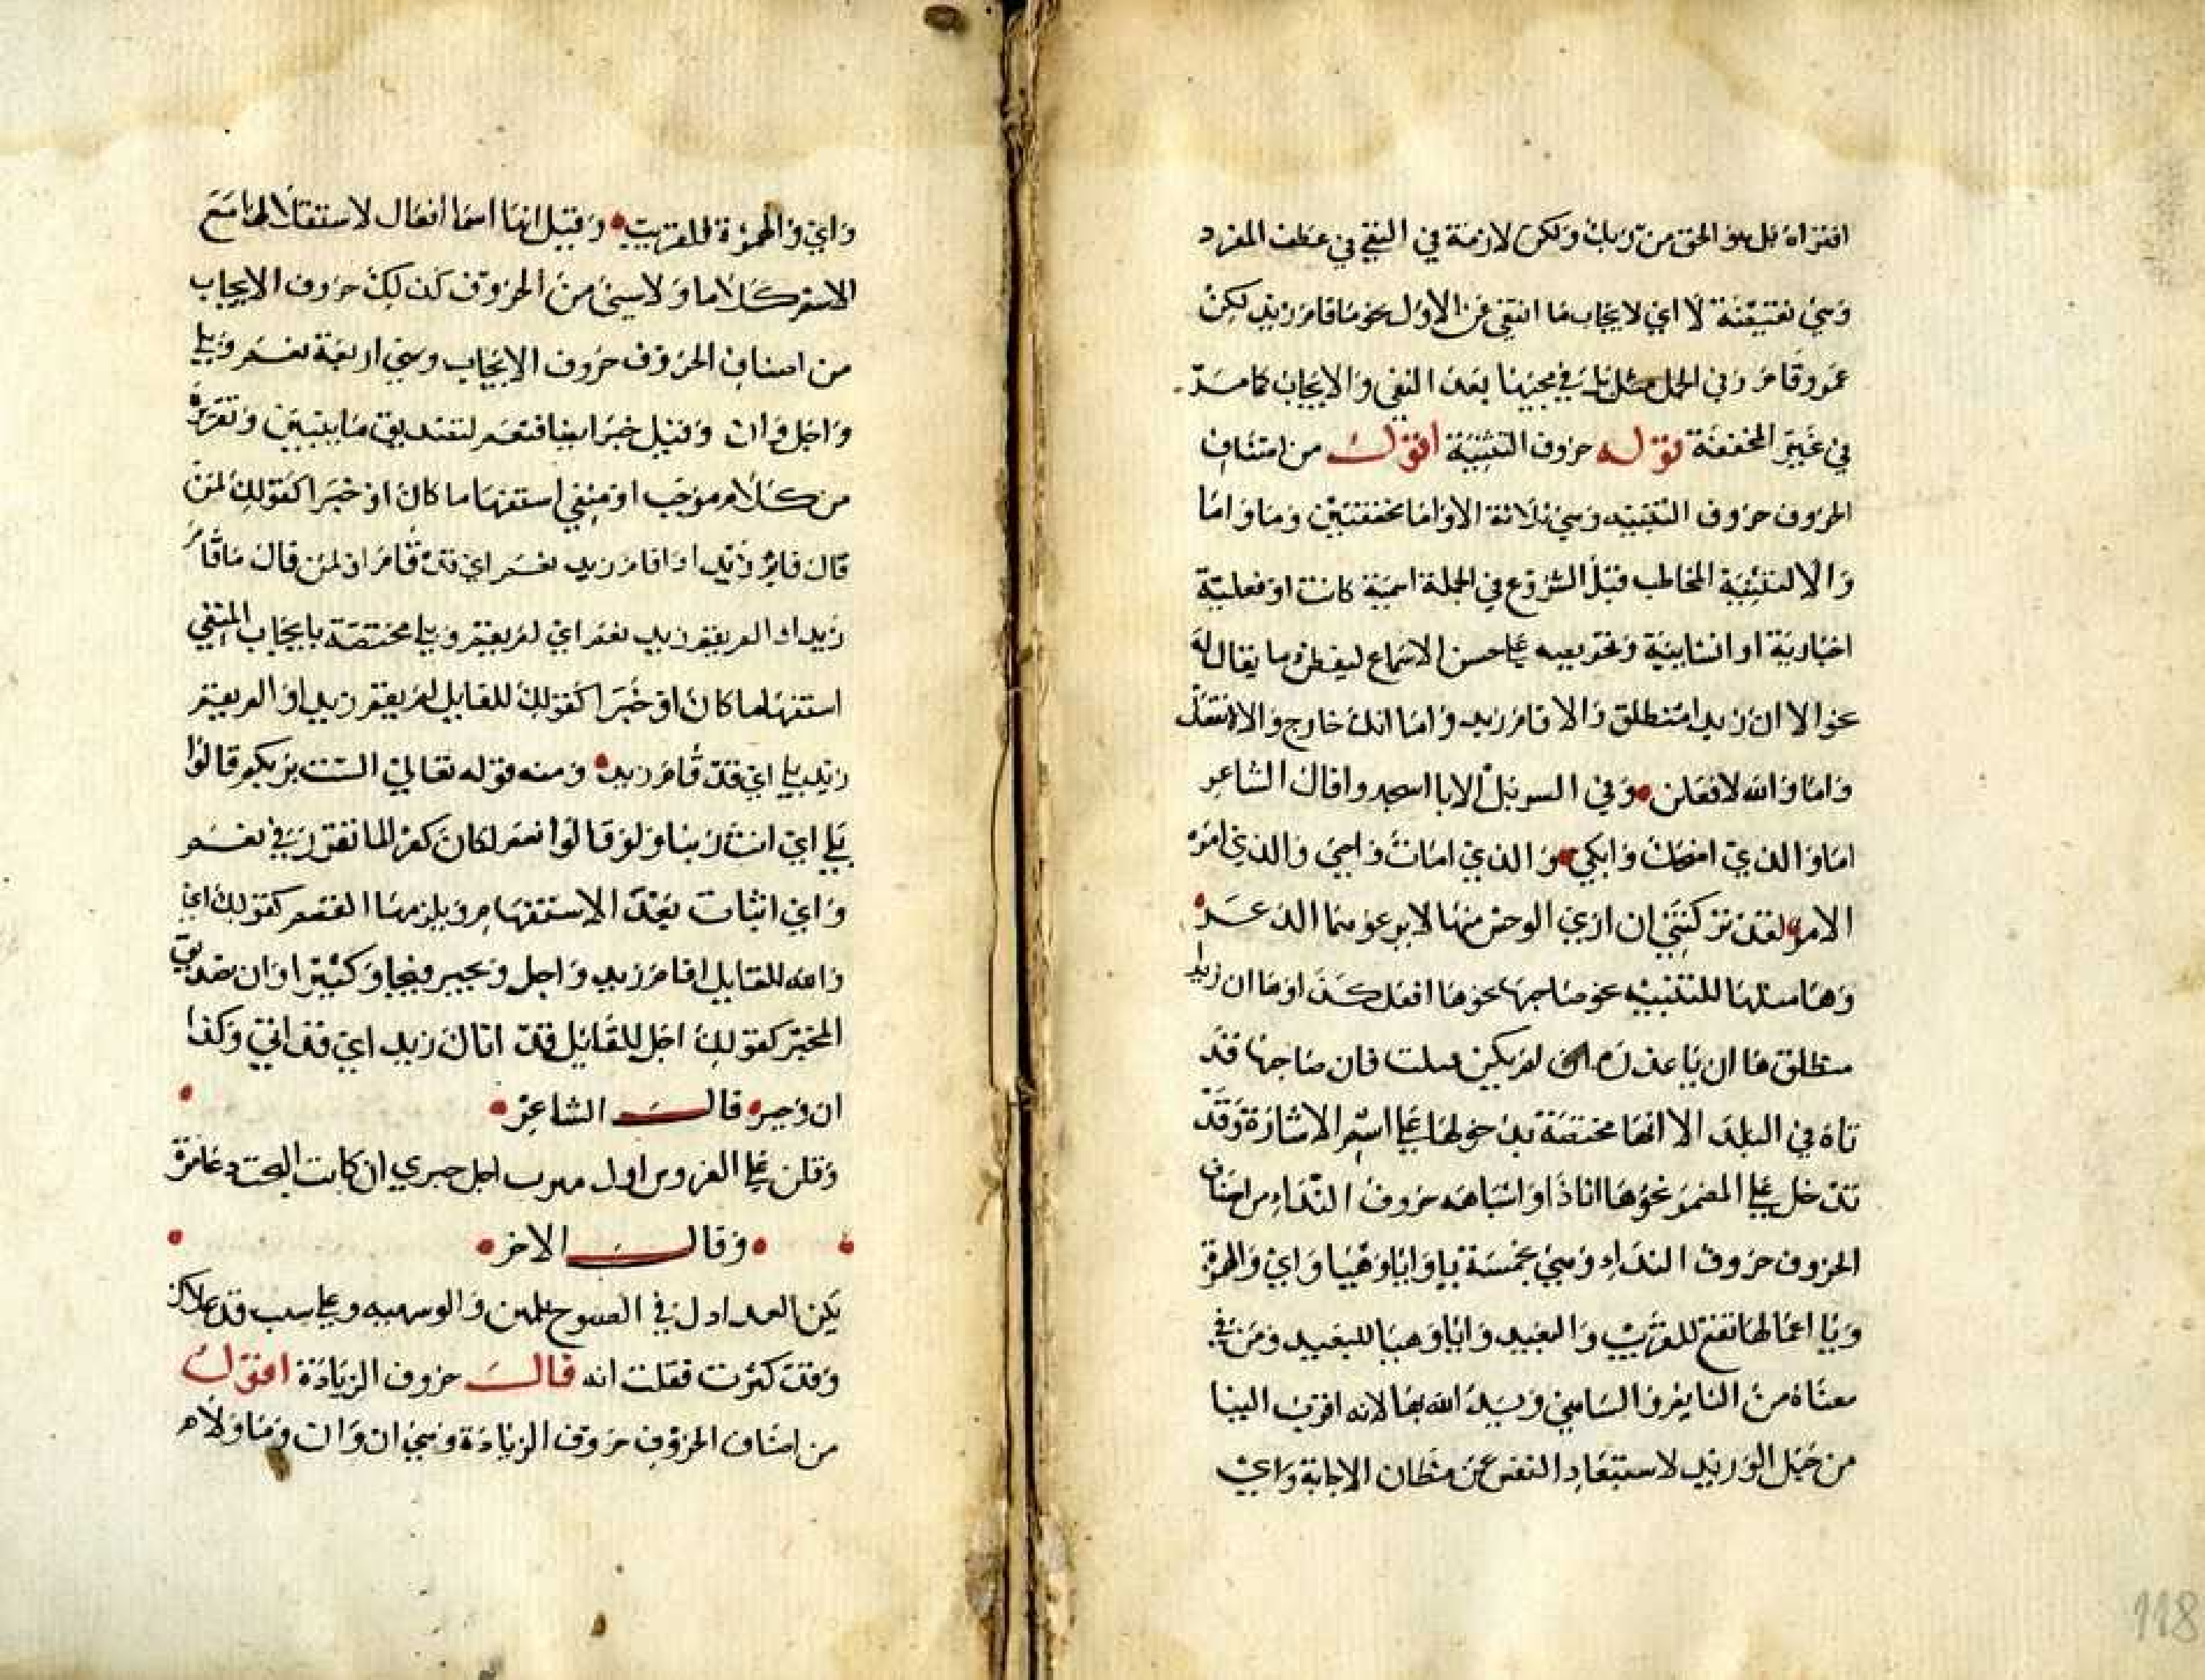 افتراه بل هو الحق من ربك ولكن لازمة في النفي في عطف المفرد
وهي نقيضة لا اي لايجاب ما انتفي عن الاول نحو ما قام زيد لكن
عمرو قام وفي الجمل مثل بل في مجيها بعد النفي والايجاب كما مر
في غير المخففة قوله حروف التنبيه اقول من اصناف
الحروف حروف التنبيه وهي ثلاثة الا واما مخففتين وها واما
والا لتنبيه المخاطب قبل الشروع في الجملة اسمية كانت او فعلية
اخبارية او انشايية وتحريضه علي حسن الاستماع ليفطن ما يقال له
نحو الا ان زيدا منطلق والا قام زيد واما انك خارج والا لا تفعل
واما والله لافعلن وفي التنزيل الا يا اسجدوا قال الشاعر
اما والذي اضحك وابكي والذي امات واحيي والذي امره
الامر لقد تركتني ان اري الوحش منها لا يروعهما الذعر
وها مثلها للتنبيه نحو صاحبها نحو ها افعل كذا او ها ان زيدا
منطلق ها ان يا عذرة ان لم يكن قبلت فان صاحبها قد
تاه في البلد الا انها مختصة بدخولها علي اسم الاشارة وقد
تدخل علي المضمر نحو ها انا ذا واشباهه حروف النداء من اصناف
الحروف حروف النداء وهي خمسة يا وايا وهيا واي والهمزة
ويا اعمالها تقع للقريب والبعيد وايا وهيا للبعيد ومن في
معناه من النايم والساهي ويدا الله بها لانه اقرب الينا
من حبل الوريد لاستبعاد النفس عن مظان الاجابة واي
واي والهمزة للقريب وقيل انها اسما افعال لاستقلالها مع
الاسم كلاما ولا شيئ من الحروف كذلك حروف الايجاب
من اصناف الحروف حروف الايجاب وهي اربعة نعم وبلي
واجل وان وقيل خيرا بها فنعم لتصديق ما يسبق وتقريره
من كلام موجب او منفي استفهاما كان او خبرا كقولك لمن
قال قام زيد او اقام زيد نعم اي قد قام او لمن قال ما قام
زيد او الم يقم زيد نعم اي لم يقم وبلي مختصة بايجاب المنفي
استفهاما كان او خبرا كقولك للقايل لم يقم زيد او الم يقم
زيد بلي اي قد قام زيد ومنه قوله تعالي الست بربكم قالوا
بلي اي انت ربنا ولو قالوا نعم لكان كفرا لما تقرر في نعم
واي اثبات بعد الاستفهام ويلزمها القسم كقولك اي
والله للقايل اقام زيد واجل وجير وبفجا وكثيرا وان تصديق
المخبر كقولك اجل للقايل قد اتاك زيد اي قد اتي وكذا
ان وجير قال الشاعر
وقلن علي الفردوس اول مشرب اجل جيري ان كانت ابيحت دعاثره
وقال الاخر
بكر العواذل في الصبوح يلمن والومهنه ويقلن شيب قد علاك
وقد كبرت فقلت انه قال حروف الزيادة اقول
من اصناف الحروف حروف الزيادة وهي ان وان وما ولا م
118